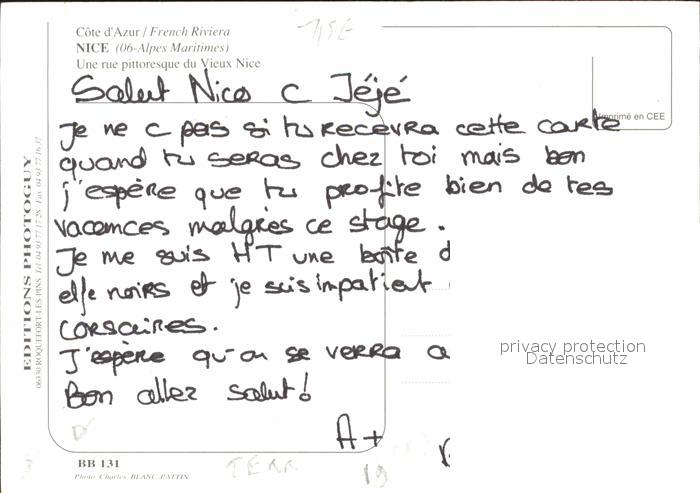 Côte d'Azur / French Riviera
NICE (06-Alpes Maritimes)
Une rue pittoresque du Vieux Nice
Imprimé en CEE
Salut Nico C Jéjé
Je ne C pas si tu recevra cette carte
quand tu seras chez toi mais bon
j'espère que tu profite bien de tes
vacances malgrès ce stage.
Je me suis HT une boîte d
elfe noirs et je suis impatient
corsaires.
J'espère qu'on se verra a
Bon allez salut!
A+
EDITIONS PHOTOGUY
06330 ROQUEFORT-LES-PINS Tél 04 93 77 17 28 Fax 04 93 77 16 37
BB 131
Photo Charles BLANC-PATTIN
TERR
19
privacy protection
Datenschutz